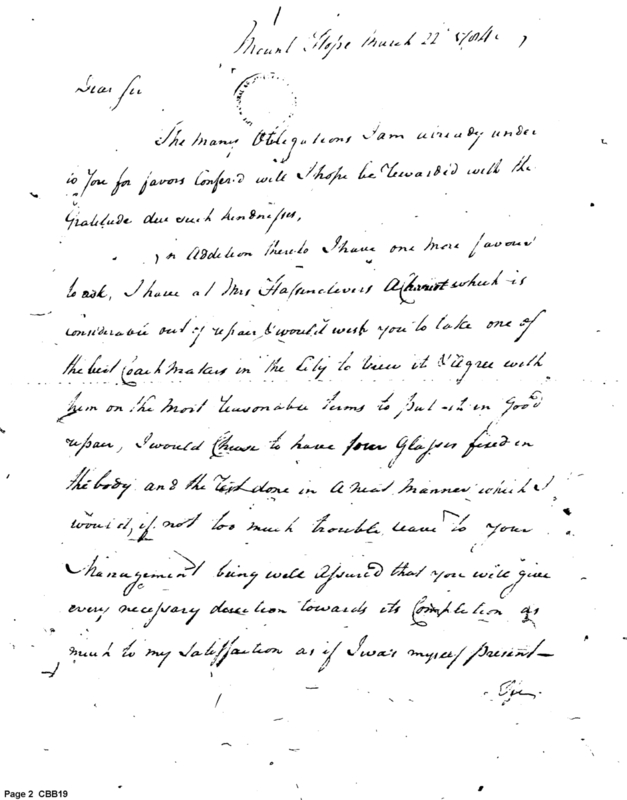 Mount Hope March 22d 1784
Dear Sir
The many Obligations I am already under
to You for favors Confer'd will I hope be rewarded with the
Gratitude due such kindnesses,
In Addition thereto I have one more favour
to ask, I have at Mrs Hasenclevers A Chariot which is
considerable out of repair & would wish you to take one of
the best Coach Makers in the City to View it & Agree with
him on the most reasonable terms to put it in Good
repair, I would Chuse to have four Glasses fixed in
the body and the rest done in A neat manner which I
would, if not too much trouble leave to your
Management being well Assured that you will give
every necessary direction towards its Completion as
much to my Satisfaction as if I was myself present—
Page 2 CBB19